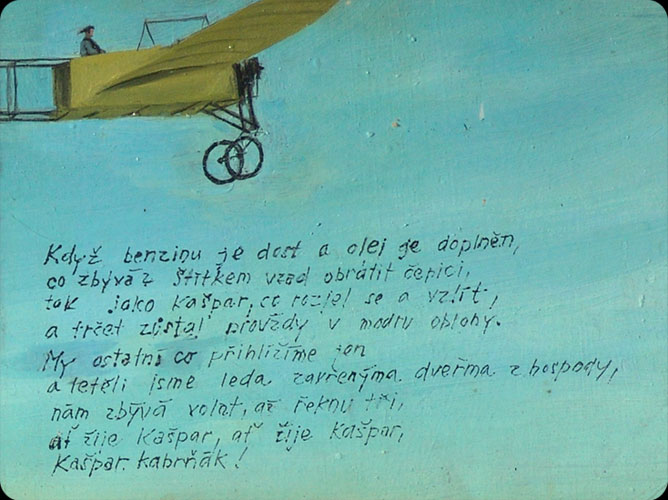 Když benzinu je dost a olej je doplněn,
co zbývá? štítkem vzad obrátit čepici,
tak jako Kašpar, co rozjel se a vzlít,
a trčet zůstal provždy v modru oblohy.
My ostatní co přihlížíme jen
a letěli jsme leda zavřenýma dveřma z hospody,
nám zbývá volat, až řeknu tři,
ať žije Kašpar, ať žije Kašpar,
Kašpar kabrňák!